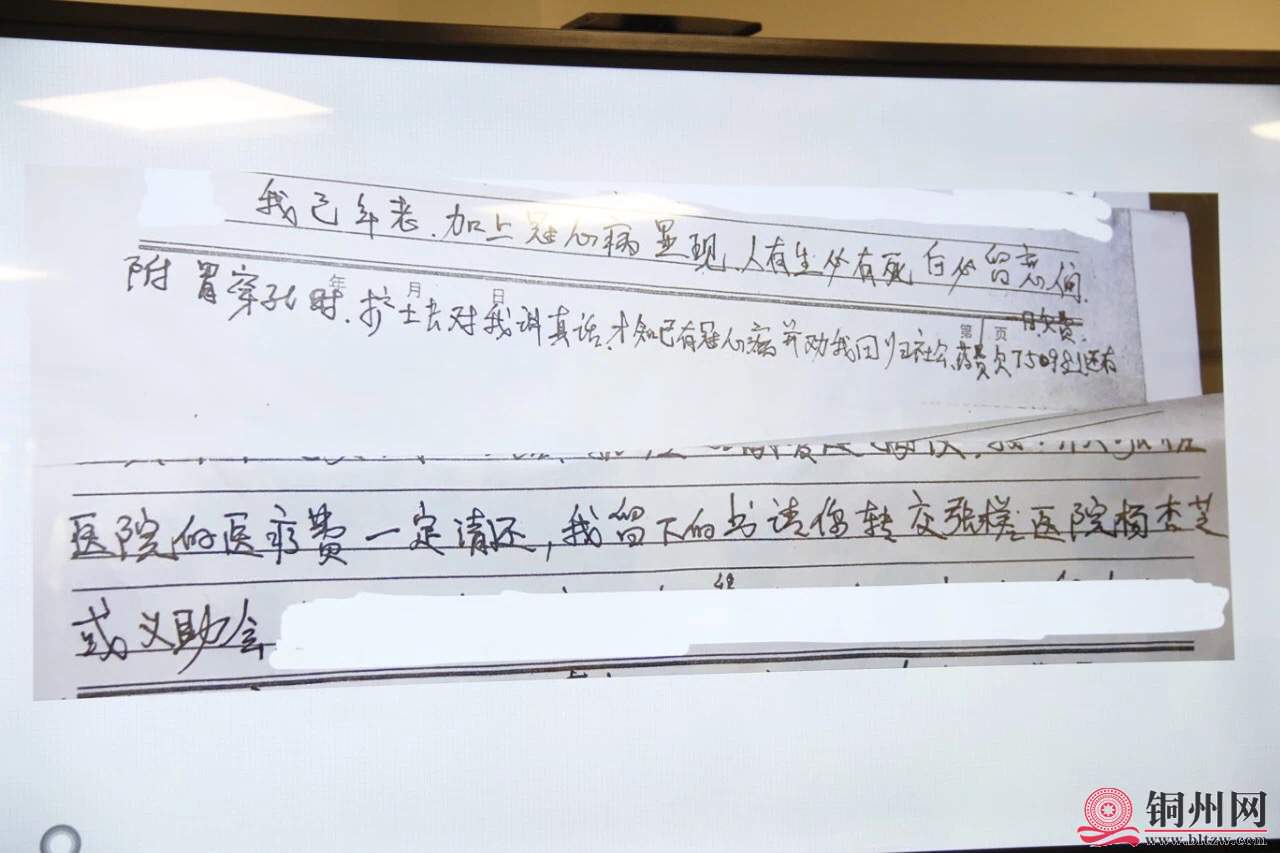 我已年老.加上冠心病显现.人有生必有死 自必留意人间.
年 月 日
附 胃穿孔时.护士长对我讲真话.才知已有冠心病并劝我回归社会.药费欠7509到还有
第 页
月欠费.
医院的医疗费一定请还,我留下的书请你转交张槎医院杨杏芝
或义助会
铜州网
www.bltzw.com